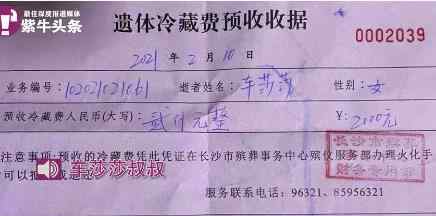 最任深度报道媒体
紫牛头条
遗体冷藏费预收收据
0002039
2021 年 2 月 10 日
业务编号: 逝者姓名: 车莎莎 性别: 女
预收冷藏费人民币(大写): 贰仟元整 ¥: 2000元
注意事项:预收的冷藏费凭此凭证在长沙市殡葬事务中心殡仪服务部办理火化手
车莎莎叔叔
长沙市殡葬
财务专用章
服务联系电话: 96321、85956321